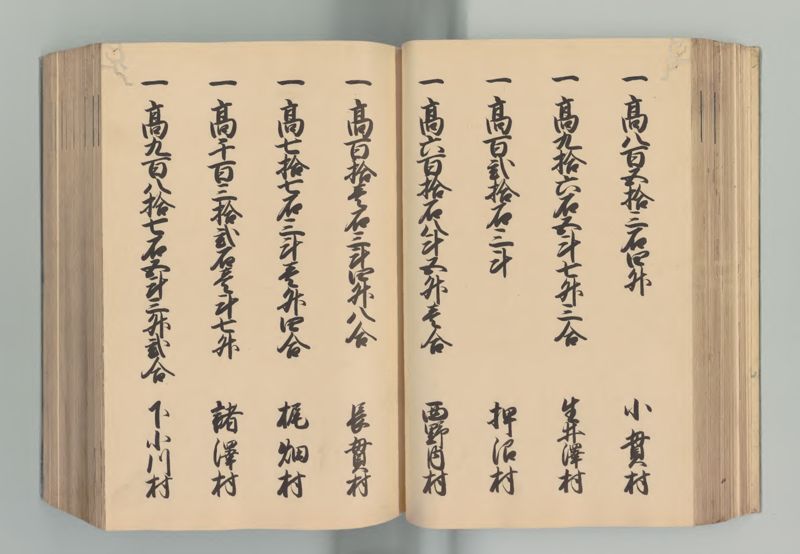 一 高八百五拾三石四升 小貫村
一 高九拾六石五斗七升三合 生井澤村
一 高百弐拾石三斗 押沼村
一 高六百拾石八斗五升壱合 西野内村
一 高百拾壱石三斗四升八合 長貫村
一 高七拾七石三斗壱升四合 梶畑村
一 高千百三拾弐石壱斗七升 諸澤村
一 高九百八拾七石五斗三升弐合 下小川村